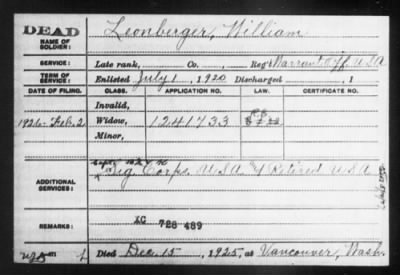 DEAD
NAME OF SOLDIER: Leonberger, William
SERVICE: Late rank, Co., Reg't Warrant Off. USA
TERM OF SERVICE: Enlisted July 1, 1920 Discharged , 1
DATE OF FILING. CLASS. APPLICATION NO. LAW. CERTIFICATE NO.
Invalid,
1926-Feb. 2 Widow, 1241733
Minor,
ADDITIONAL SERVICES: Sig. Corps, USA & Retired USA
REMARKS: XC 728 489
Died Dec. 15, 1925, at Vancouver, Wash.